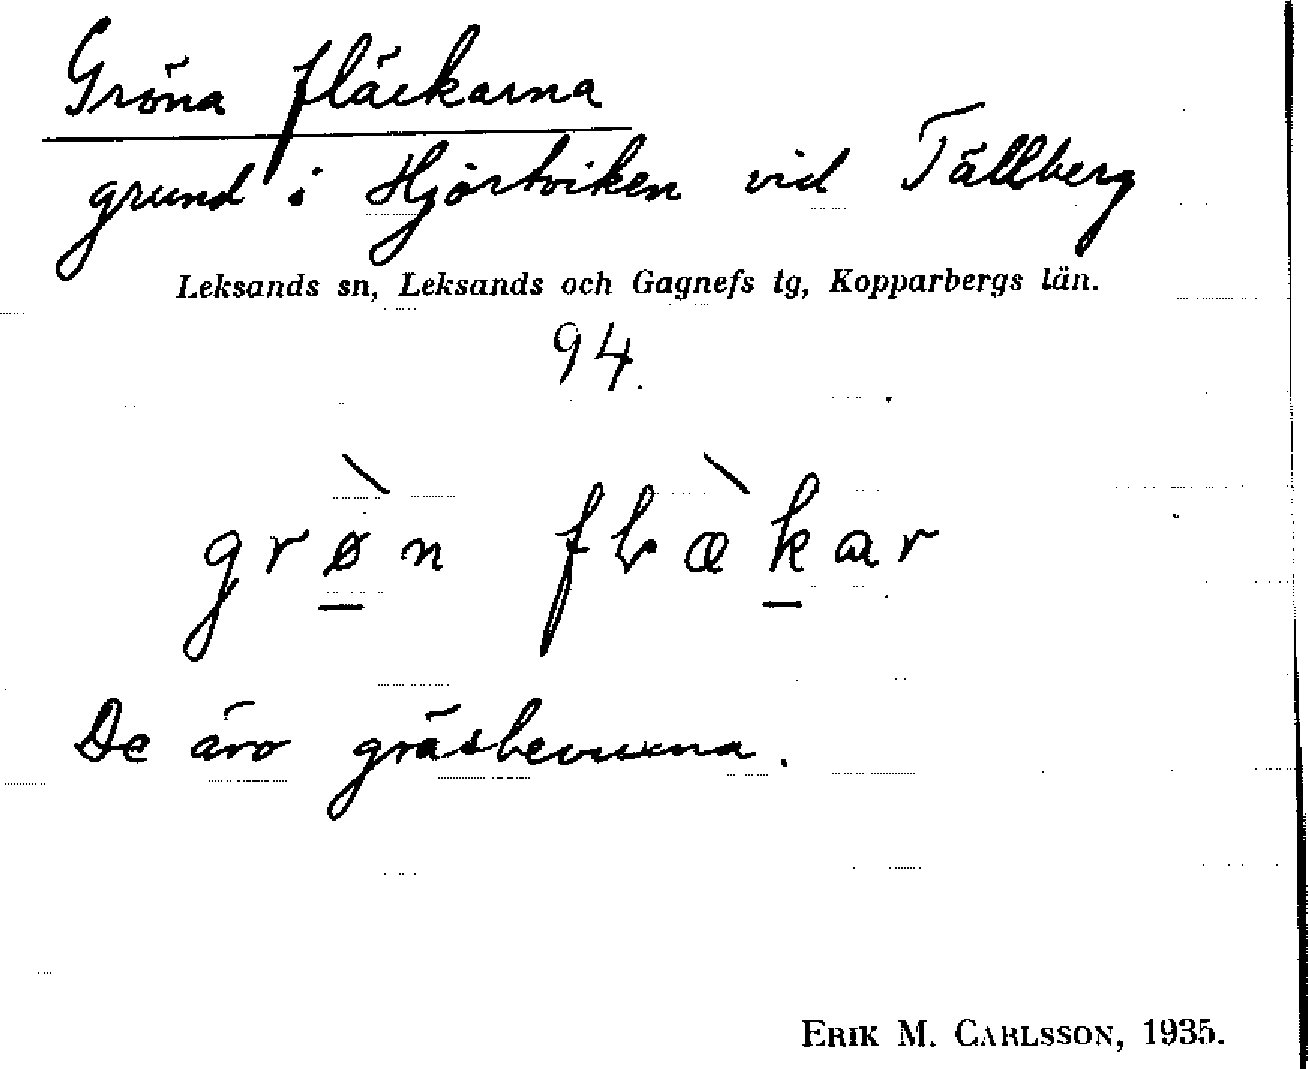 Gröna fläckarna
grund i Hjörtviken vid Tällberg
Leksands sn, Leksands och Gagnefs tg, Kopparbergs län.
94.
grø̲̀n flæ̀k̲ar
De äro gräsbevuxna.
ERIK M. CARLSSON, 1935.